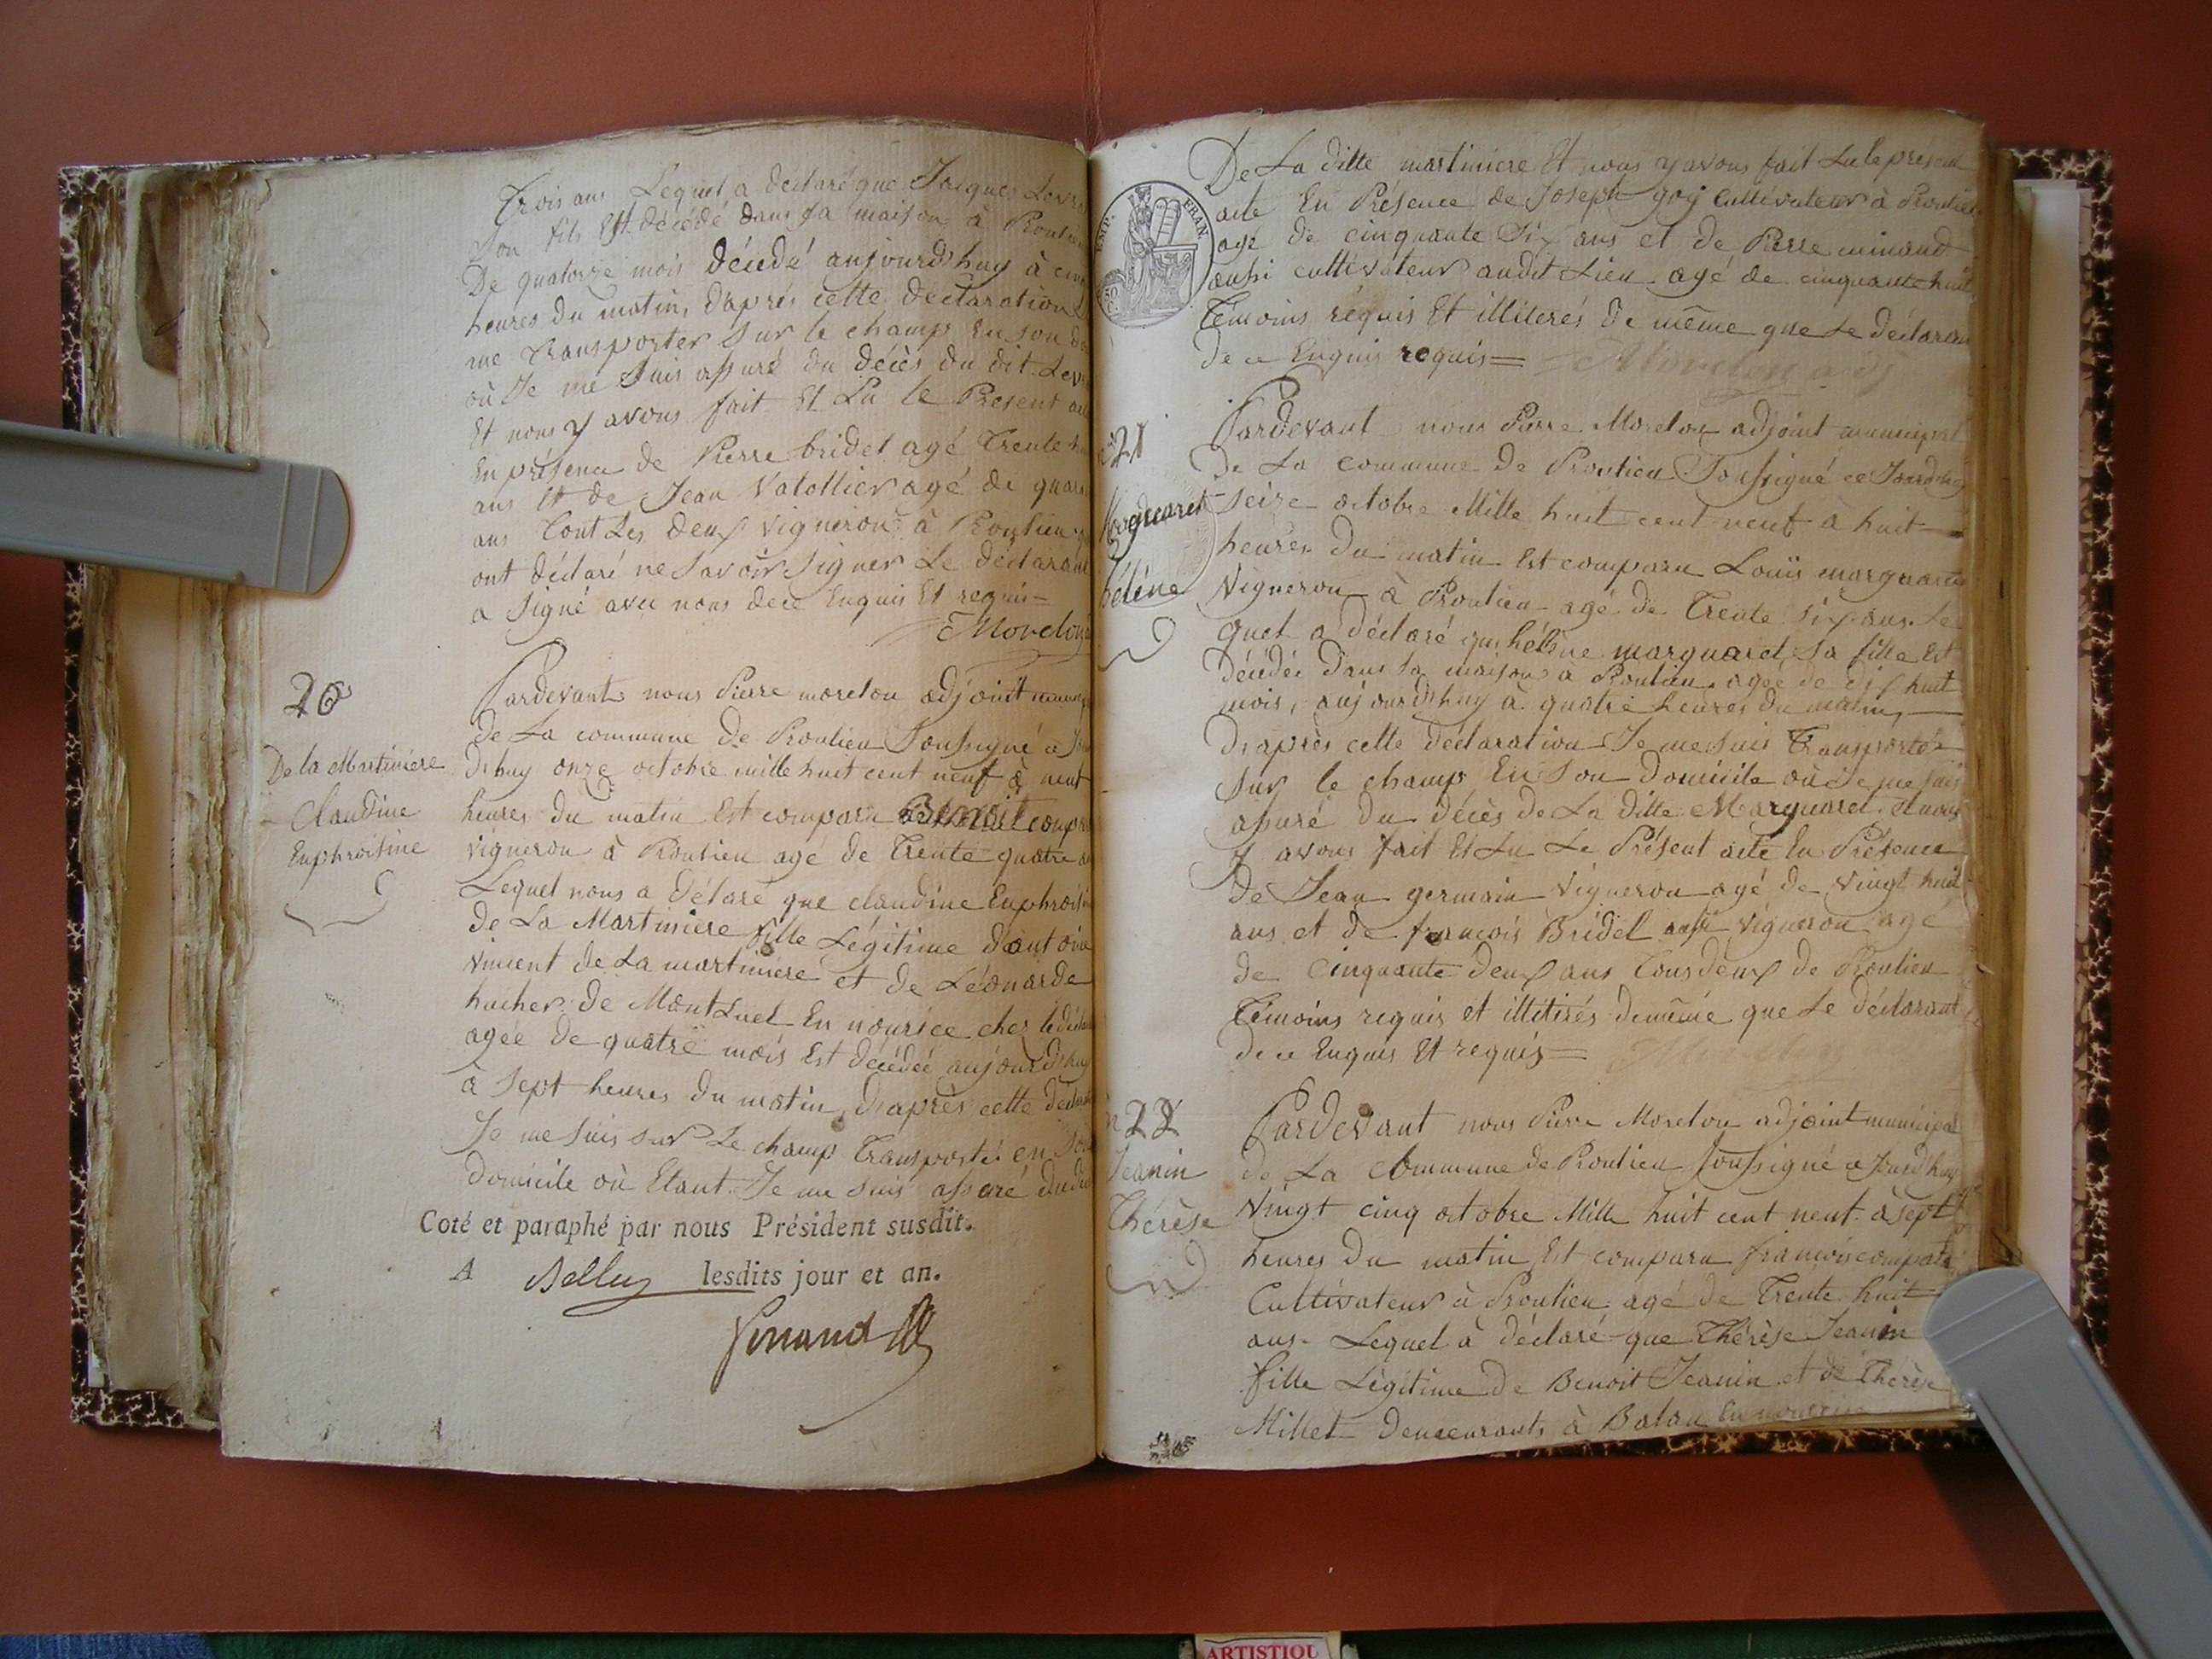 Trois ans Lequel a declaré que Jacques
Son fils Est décédé dans sa maison à
De quatorze mois décédé aujourdhuy à
heures du matin, d'après cette declaration
me Transporter Sur le champs En son
où Je me suis assuré du décès du dit
Et nous y avons fait Et Lu le Présent
En présence de Pierre bridel agé Trente
ans Et de Jean Vatollier agé de
ans Tout Les deux vignerons à
ont déclaré ne savoir signer Le déclarant
a signé avec nous de ce Enquis Et requis =
Morelon
20
De la Martiniere
Claudine
Euphroisine
Pardevant nous Pierre morelon adjoint
de La commune de Soussigné
dhuy onze octobre mille huit cent neuf à neuf
heures du matin Est comparu Benoit
vigneron à agé de Trente quatre
Lequel nous a Déclaré que claudine
de La Martiniere fille Légitime
vincent de La martiniere et de Léonarde
hucher de Montluel En nourice chez
agée de quatre mois Est décédée aujourdhuy
à Sept heures du matin, d'après cette
Je me suis sur Le champ Transporté en
Domicile où Etant. Je me suis assuré
Coté et paraphé par nous Président susdit.
A lesdits jour et an.
EMP. FRAN.
De La ditte martiniere Et nous y avons fait Lu le présent
acte En Présence de Joseph goy Cultivateur à
agé de cinquante Six ans et de Pierre minaud
aussi cultivateur audit Lieu agé de cinquante huit
Témoins réquis Et illiterés De même que Le déclarant
de ce Enquis requis = Morelon
21
Marguaret
hélène
Pardevant nous Pierre Morelon adjoint municipal
De La commune De Soussigné ce Jourdhuy
Seize octobre Mille huit cent neuf à huit
heures Du matin Est comparu Louïs marguaret
Vigneron à agé de Trente Six ans. Le
quel a déclaré que hélène marguaret Sa fille Est
Décédée Dans Sa maison à agée de dix huit
mois, aujourdhuy à quatre heures Du matin,
D'après cette déclaration Je me suis Transporté
Sur le champ En Son Domicile où Je me suis
assuré Du décès de La ditte Marguaret et nous
y avons fait Et Lu Le Présent acte En Présence
de Jean germain Vigneron agé de Vingt huit
ans et de françois Bridel aussi vigneron agé
de Cinquante Deux ans Tous deux de
Témoins requis et illitirés de même que Le déclarant
de ce Enquis Et requis =
n 22
Jeanin
Thérèse
Pardevant nous Pierre Morelon adjoint municipal
de La Commune de Soussigné ce Jourdhuy
Vingt cinq octobre Mille huit cent neuf à sept
heures Du matin Est comparu françois
Cultivateur à agé de Trente huit
ans. Lequel à déclaré que Thérèse Jeanin
fille Légitime de Benoit Jeanin et de Thérèse
Millet Demeurants à Balan En
ARTISTIQU